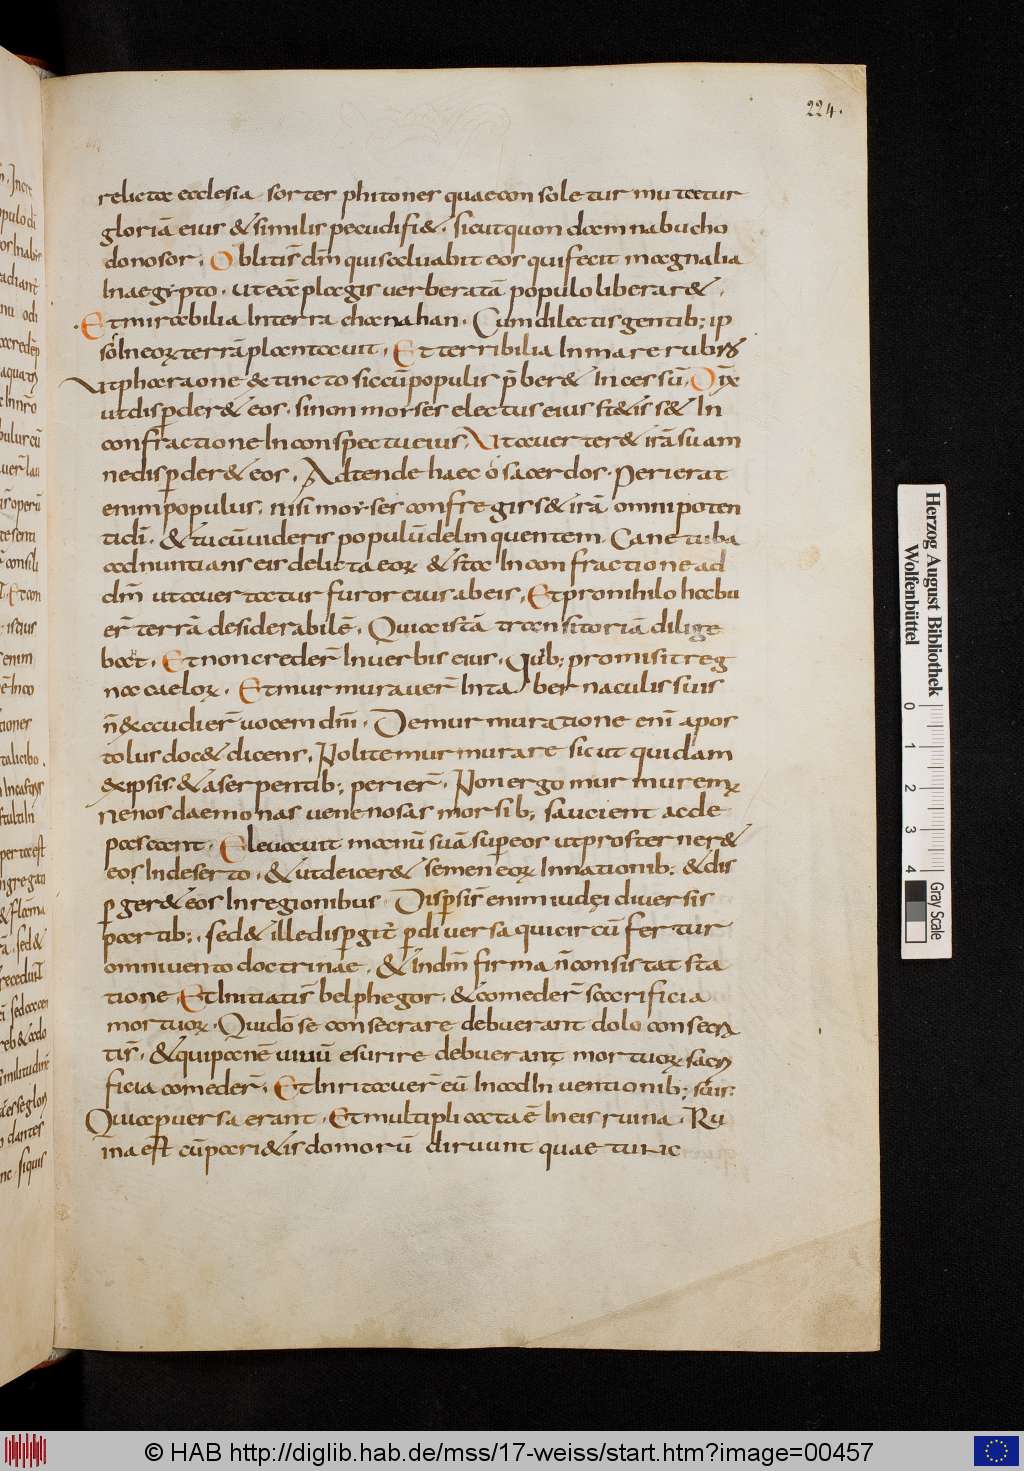 224.
relictae ecclesia. sorter phitoner quae con soletur mutetur
gloriā eius & similis pecudifi&. sicut quondam nabucho
donosor. Obliti s̄ dm̄ qui saluabit eos qui fecit magnalia
In aegypto. ut eāe plagis uerberatā populo liberar&.
Et mirabilia In terra chanahan. Cum dilectis gentib; ip
so In eoꝝ terrā plantauit. Et terribilia In mare rubꝝ
Ut pharaone & tincto siccū populis p̄ber& Incessū. Dix̄
ut disꝑder& eos. si non morses electus eius st&iss& In
confractione In conspectu eius. Ut auerter& irā suam
ne disꝑder& eos. Adtende haec o sacerdos. Perierat
enim populus. nisi moyses confregiss& irā omnipoten
tidī. & tu cū uideris populū delinquentem. Cane tuba
adnuntians eis delicta eoꝝ & sta In confractione ad
dm̄ ut auertatur furor eius ab eis. Et pro nihilo habu
er̄ terrā desiderabilē. Quia istā transitoriā dilige
bat. Et non creder̄ In uerbis eius. Quib; promisit reg
na caeloꝝ. Et murmurauer̄ In tabernaculis suis
n̄ exaudier̄ uocem dn̄i. De murmuratione enī apos
tolus doc& dicens. Nolite murmurare sicut quidam
ex ipsis. & a serpentib; perier̄. Non ergo murmuremꝰ
ne nos daemonas uenenosas morsib; saucient ac de
pascant. Eleuauit manū suā super eos ut prosterner&
eos In deserto. & ut deicer& semen eoꝝ In nationib; & dis
ꝑger& eos In regionibus. Dispersis̄ enim iudęi diuersis
partib;. sed & ille disꝑgit̄ ꝑ diuersa qui circūfertur
omni uento doctrinae. & In dm̄ firma n̄ consistat sta
tione. Et Initiatis̄ belphegor. & comeder̄ sacrificia
mortuoꝝ. Qui dō se consecrare debuerant dolo consecra
tis̄. & qui panē uiuū esurire debuerant mortuoꝝ sacri
ficia comeder̄. Et Inritauer̄ eū In adInuentionib; suis.
Quia ꝑuersa erant. Et multiplicata ē In eis ruina. Ru
ina est cū pari&is domorū diruunt quae turic
Herzog August Bibliothek
Wolfenbüttel
0 1 2 3 4
Gray Scale
© HAB http://diglib.hab.de/mss/17-weiss/start.htm?image=00457